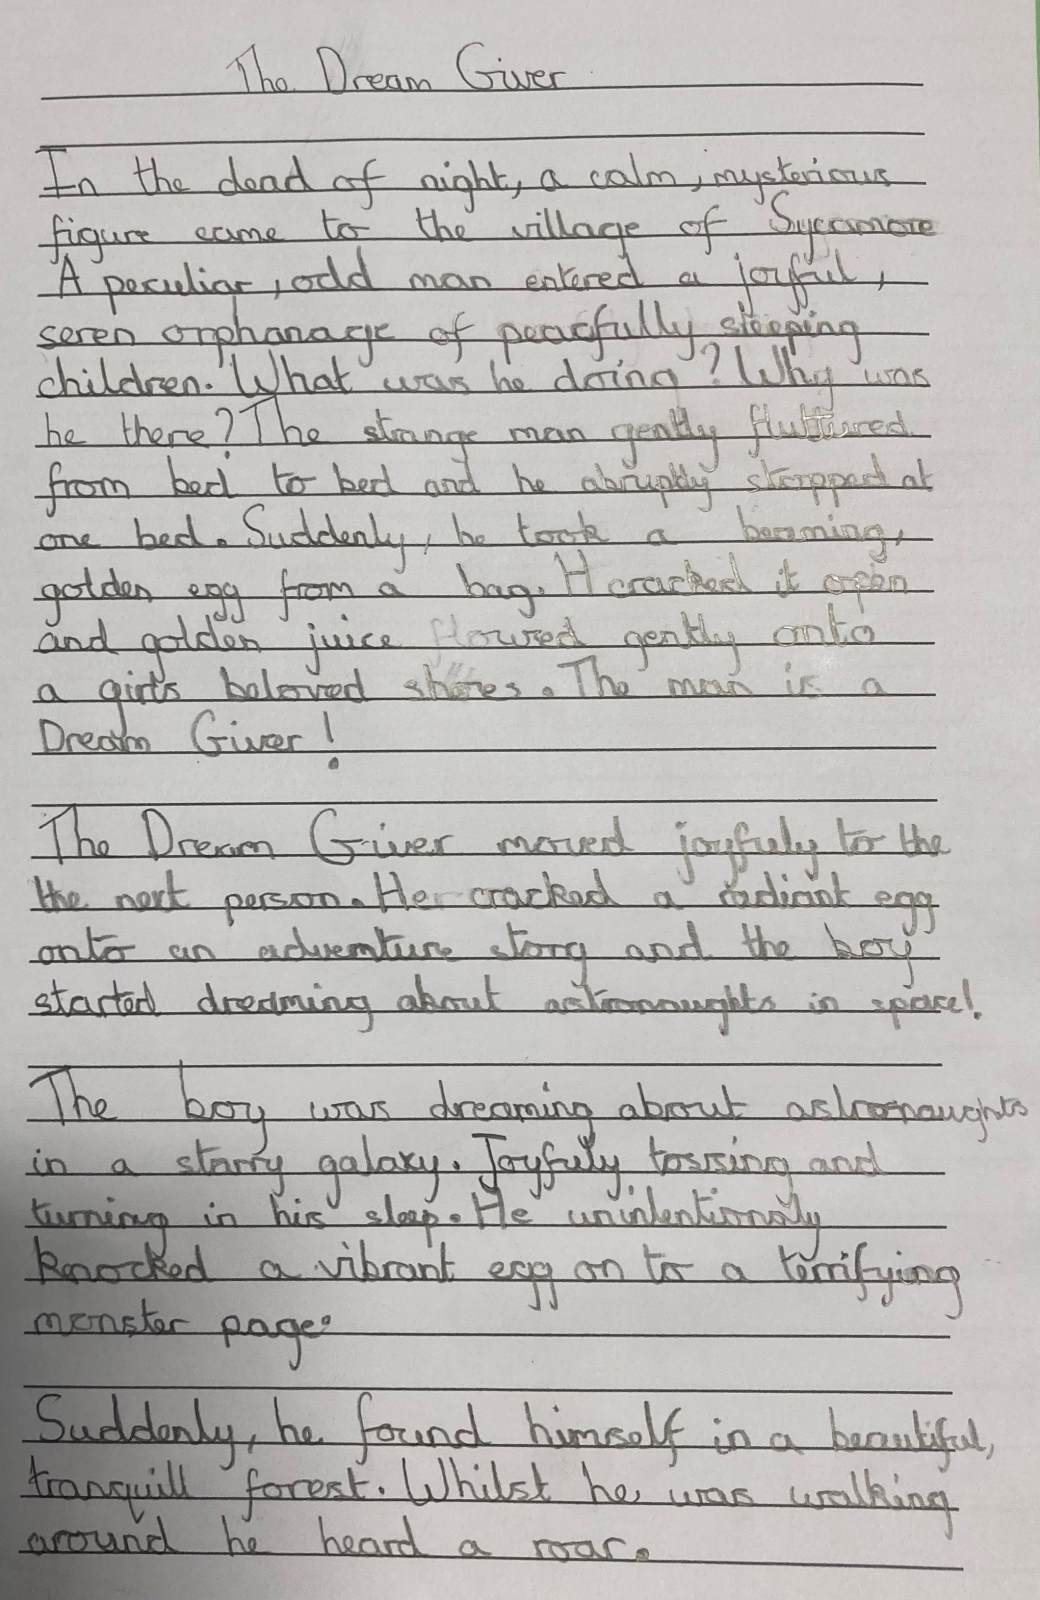 The Dream Giver
In the dead of night, a calm, mysterious
figure came to the village of Sycamore
A peculiar, odd man entered a joyful,
seren orphanage of peacfully sleeping
children. What was he doing? Why was
he there? The strange man gently fluttered
from bed to bed and he abruptly stopped at
one bed. Suddenly, he took a beaming,
golden egg from a bag. H cracked it open
and golden juice flowed gently onto
a girl's beloved shoes. The man is a
Dream Giver!
The Dream Giver moved joyfuly to the
the next person. He cracked a radiant egg
onto an adventure story and the boy
started dreaming about astronaughts in space!
The boy was dreaming about astronaughts
in a starry galaxy. Joyfuly tossing and
turning in his sleep. He unintentionaly
knocked a vibrant egg on to a terrifying
monster page.
Suddenly, he found himself in a beautiful,
tranquill forest. Whilst he was walking
around he heard a roar.